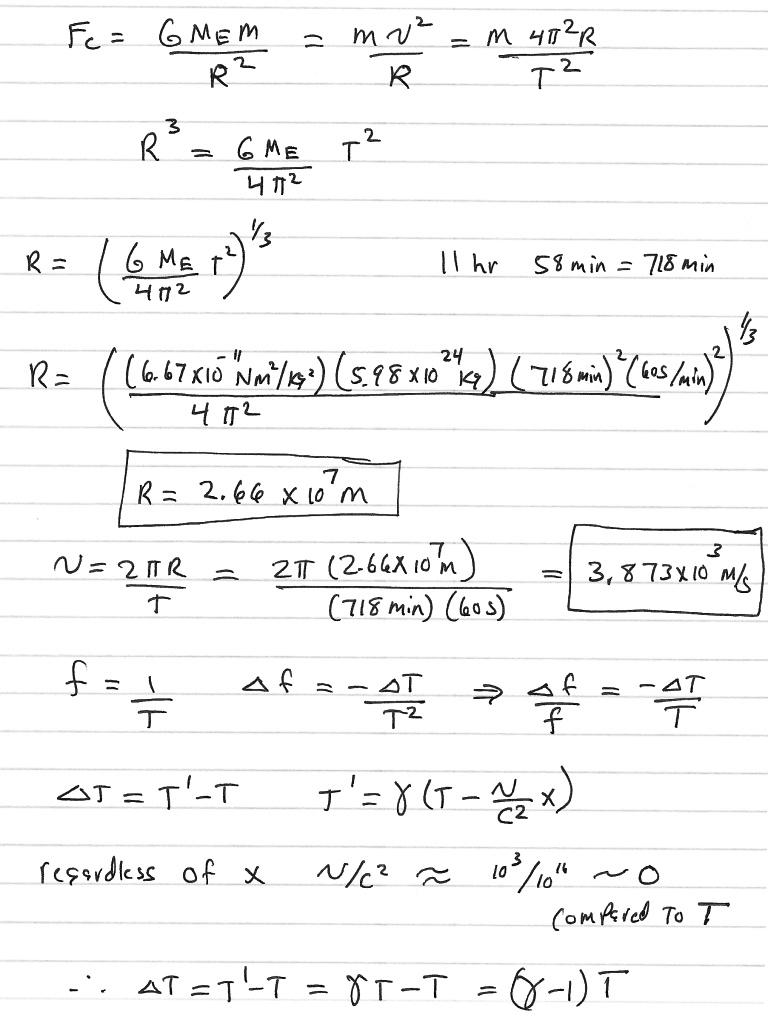 Fc = G MEm / R² = m v² / R = m 4π²R / T²
R³ = G ME / 4π² T²
R = (G ME / 4π² T²)^1/3 11 hr 58 min = 718 min
R = ((6.67 x 10⁻¹¹ Nm²/kg²) (5.98 x 10²⁴ kg) (718 min)² (60s/min)² / 4π²)^1/3
R = 2.66 x 10⁷ m
v = 2πR / T = 2π (2.66 x 10⁷ m) / (718 min) (60s) = 3,873 x 10³ m/s
f = 1 / T Δf = -ΔT / T² ⇒ Δf / f = -ΔT / T
ΔT = T' - T T' = γ (T - v / c² x)
regardless of x v/c² ≈ 10³/10¹⁶ ~ 0
compared to T
∴ ΔT = T' - T = γT - T = (γ-1) T